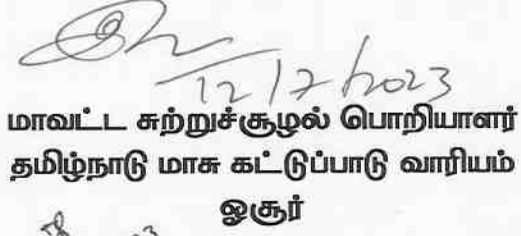 12/7/2023
மாவட்ட சுற்றுச்சூழல் பொறியாளர்
தமிழ்நாடு மாசு கட்டுப்பாடு வாரியம்
ஓசூர்